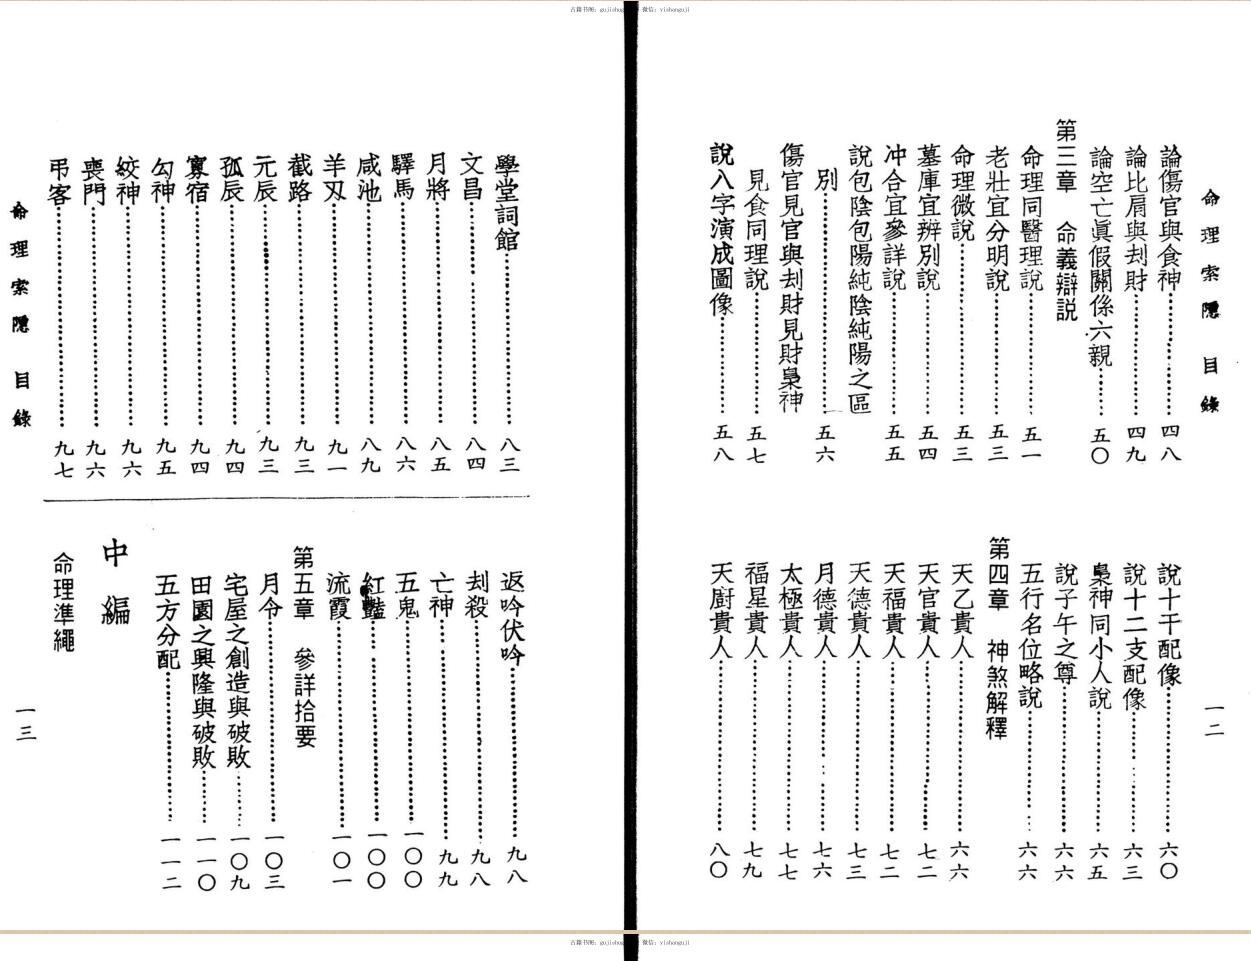 微信：yishanguji
命理索隱　目錄
論傷官與食神……四八
論比肩與刦財……四九
論空亡眞假關係六親……五〇
第三章　命義辯説
命理同醫理説……五一
老壯宜分明説……五三
命理微説……五三
墓庫宜辨別説……五四
冲合宜參詳説……五五
說包陰包陽純陰純陽之區
別……五六
傷官見官與刦財見財梟神
見食同理説……五七
說八字演成圖像……五八
說十干配像……六〇
說十二支配像……六三
梟神同小人說……六五
說子午之尊……六六
五行名位略說……六六
第四章　神煞解釋
天乙貴人……六六
天官貴人……七二
天福貴人……七二
天德貴人……七三
月德貴人……七六
太極貴人……七七
福星貴人……七九
天廚貴人……八〇
一二
學堂詞館……八三
文昌……八四
月將……八五
驛馬……八六
咸池……八九
羊刃……九一
截路……九三
元辰……九三
孤辰……九四
寡宿……九四
勾神……九五
絞神……九六
喪門……九六
弔客……九七
返吟伏吟……九八
刦殺……九八
亡神……九九
五鬼……一〇〇
紅豔……一〇〇
流霞……一〇一
第五章　參詳拾要
月令……一〇三
宅屋之創造與破敗……一〇九
田園之興隆與破敗……一一〇
五方分配……一一二
中編
命理準繩
命理索隱　目錄
一三
微信：yishanguji